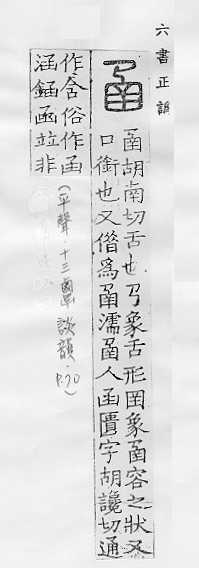 六書正譌
圅
圅胡南切舌也㔾象舌形囬象圅容之狀又
口銜也又借爲圅濡圅人函匱字胡讒切通
作含俗作函
涵鋡凾並非
(平聲．十三覃談韻．P.30)